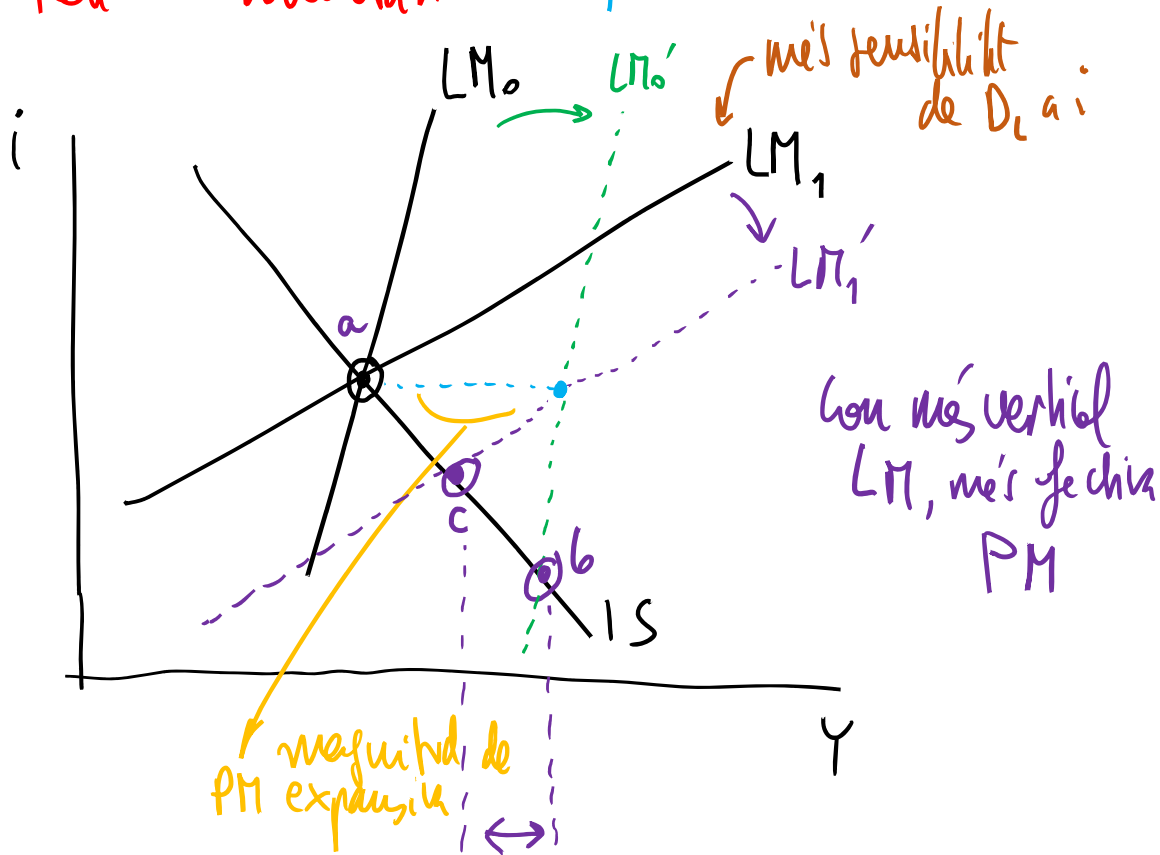 LM₀
LM₀′
més sensibilitat
de D_L a i
i
LM₁
LM₁′
a
Con més vertical
LM, més efectiva
PM
c
b
IS
Y
magnitud de
PM expansiva